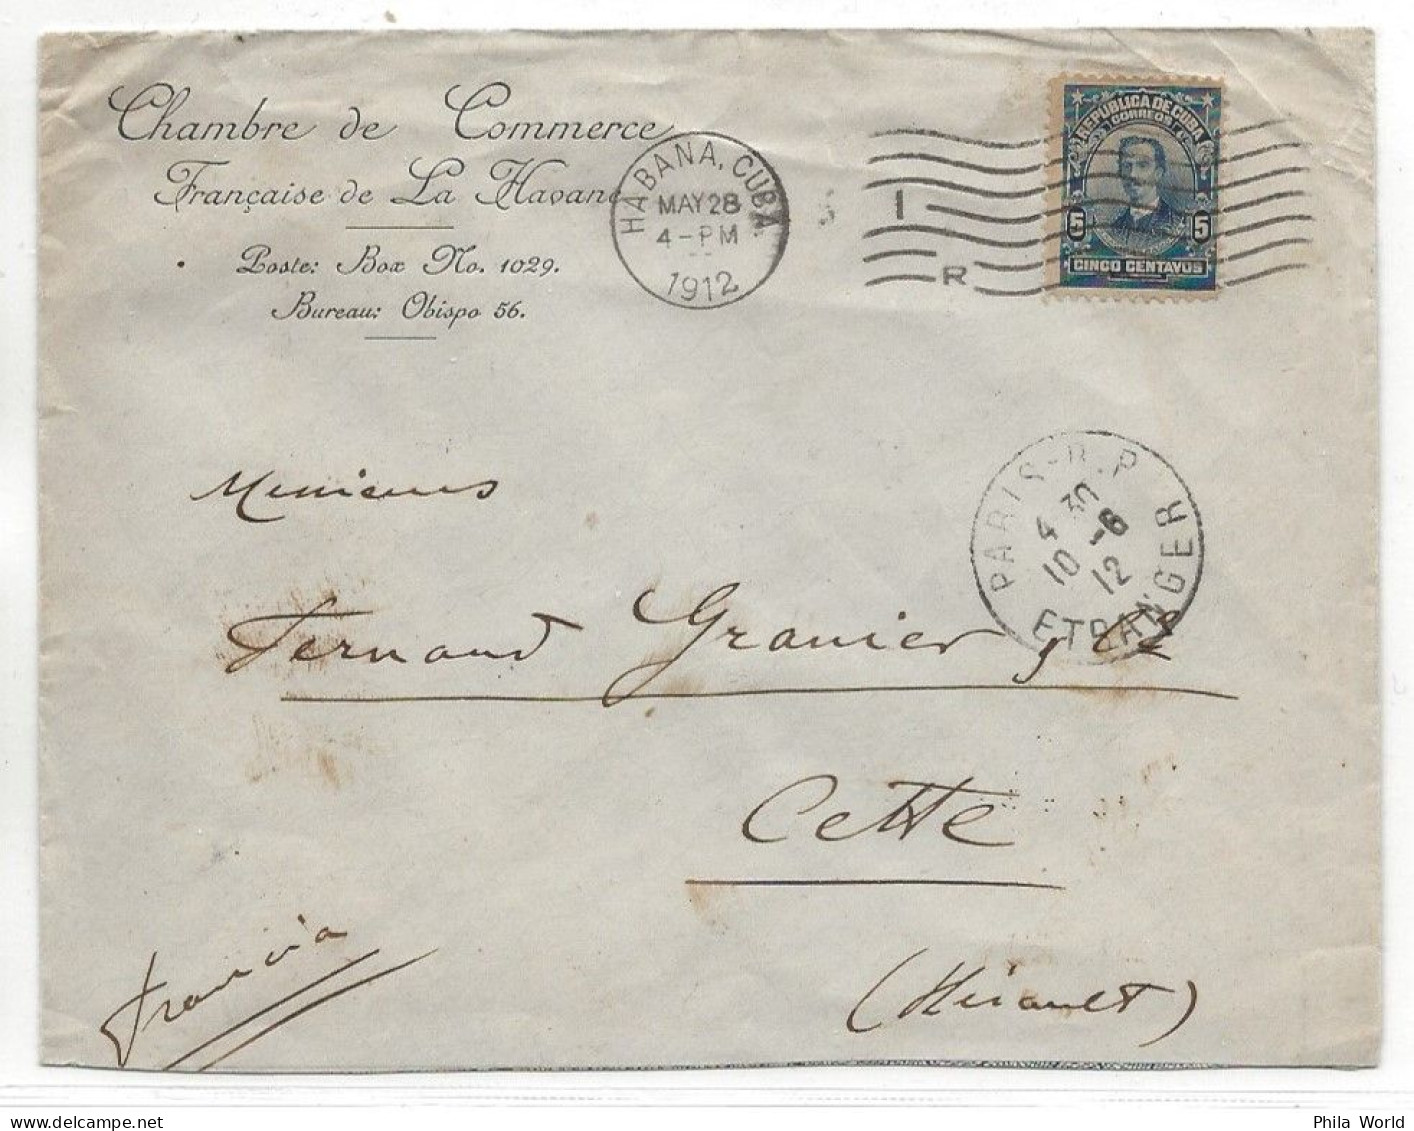 Chambre de Commerce
Française de La Havane
Poste: Box No. 1029.
Bureau: Obispo 56.
HABANA, CUBA.
MAY 28
4-PM
1912
I
R
REPUBLICA DE CUBA
CORREOS
5 5
CINCO CENTAVOS
PARIS-R.P.
4 30
10 -6
12
ETRANGER
Messieurs
Fernand Granier & Cie
Cette
(Hérault)
Francia
Phila World